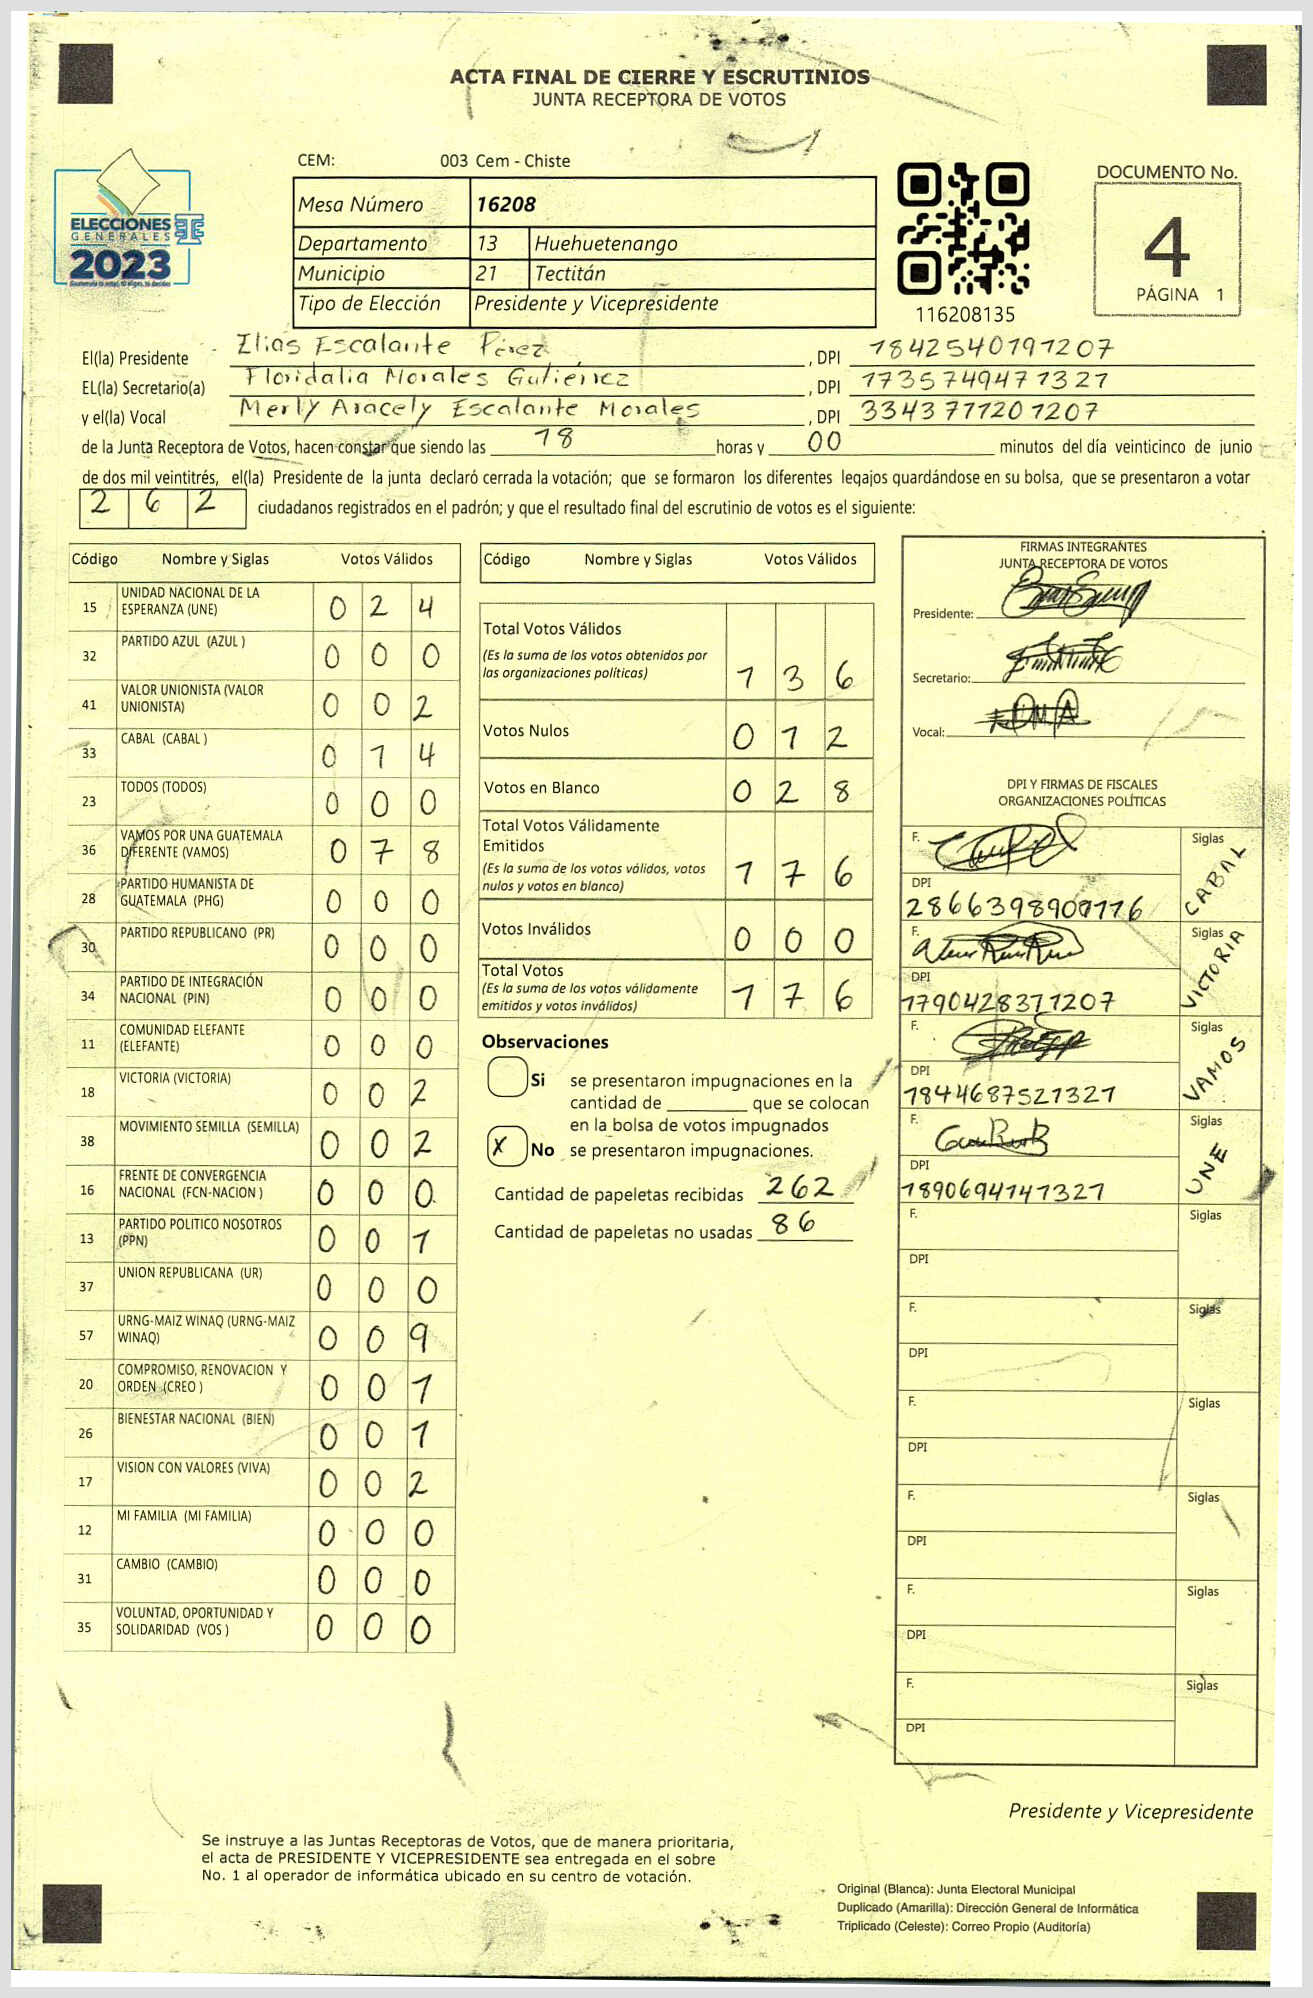 ACTA FINAL DE CIERRE Y ESCRUTINIOS
JUNTA RECEPTORA DE VOTOS
ELECCIONES
GENERALES
2023
CEM: 003 Cem - Chiste
Mesa Número 16208
Departamento 13 Huehuetenango
Municipio 21 Tectitán
Tipo de Elección Presidente y Vicepresidente
116208135
DOCUMENTO No.
4
PÁGINA 1
El(la) Presidente Elias Escalante Pérez, DPI 1842540191207
EL(la) Secretario(a) Floridalia Morales Gutiérrez, DPI 1735749471321
y el(la) Vocal Merly Aracely Escalante Morales, DPI 3343711201207
de la Junta Receptora de Votos, hacen constar que siendo las 18 horas y 00 minutos del día veinticinco de junio
de dos mil veintitrés, el(la) Presidente de la junta declaró cerrada la votación; que se formaron los diferentes legajos guardándose en su bolsa, que se presentaron a votar
2 6 2 ciudadanos registrados en el padrón; y que el resultado final del escrutinio de votos es el siguiente:
Código Nombre y Siglas Votos Válidos
15 UNIDAD NACIONAL DE LA ESPERANZA (UNE) 0 2 4
32 PARTIDO AZUL (AZUL ) 0 0 0
41 VALOR UNIONISTA (VALOR UNIONISTA) 0 0 2
33 CABAL (CABAL ) 0 1 4
23 TODOS (TODOS) 0 0 0
36 VAMOS POR UNA GUATEMALA DIFERENTE (VAMOS) 0 7 8
28 PARTIDO HUMANISTA DE GUATEMALA (PHG) 0 0 0
30 PARTIDO REPUBLICANO (PR) 0 0 0
34 PARTIDO DE INTEGRACIÓN NACIONAL (PIN) 0 0 0
11 COMUNIDAD ELEFANTE (ELEFANTE) 0 0 0
18 VICTORIA (VICTORIA) 0 0 2
38 MOVIMIENTO SEMILLA (SEMILLA) 0 0 2
16 FRENTE DE CONVERGENCIA NACIONAL (FCN-NACION ) 0 0 0
13 PARTIDO POLITICO NOSOTROS (PPN) 0 0 1
37 UNION REPUBLICANA (UR) 0 0 0
57 URNG-MAIZ WINAQ (URNG-MAIZ WINAQ) 0 0 9
20 COMPROMISO, RENOVACION Y ORDEN (CREO ) 0 0 1
26 BIENESTAR NACIONAL (BIEN) 0 0 1
17 VISION CON VALORES (VIVA) 0 0 2
12 MI FAMILIA (MI FAMILIA) 0 0 0
31 CAMBIO (CAMBIO) 0 0 0
35 VOLUNTAD, OPORTUNIDAD Y SOLIDARIDAD (VOS ) 0 0 0
Código Nombre y Siglas Votos Válidos
Total Votos Válidos
(Es la suma de los votos obtenidos por
las organizaciones políticas) 1 3 6
Votos Nulos 0 1 2
Votos en Blanco 0 2 8
Total Votos Válidamente
Emitidos
(Es la suma de los votos válidos, votos
nulos y votos en blanco) 1 7 6
Votos Inválidos 0 0 0
Total Votos
(Es la suma de los votos válidamente
emitidos y votos inválidos) 1 7 6
Observaciones
Si se presentaron impugnaciones en la
cantidad de ________ que se colocan
en la bolsa de votos impugnados
X No se presentaron impugnaciones.
Cantidad de papeletas recibidas 262
Cantidad de papeletas no usadas 86
FIRMAS INTEGRANTES
JUNTA RECEPTORA DE VOTOS
Presidente:
Secretario:
Vocal:
DPI Y FIRMAS DE FISCALES
ORGANIZACIONES POLÍTICAS
F. Siglas CABAL
DPI
F. Siglas VICTORIA
DPI
1790428311207
F. Siglas VAMOS
DPI
1844687521321
F. Siglas UNE
DPI
1890694141321
F. Siglas
DPI
F. Siglas
DPI
F. Siglas
DPI
F. Siglas
DPI
F. Siglas
DPI
F. Siglas
DPI
Presidente y Vicepresidente
Se instruye a las Juntas Receptoras de Votos, que de manera prioritaria,
el acta de PRESIDENTE Y VICEPRESIDENTE sea entregada en el sobre
No. 1 al operador de informática ubicado en su centro de votación.
Original (Blanca): Junta Electoral Municipal
Duplicado (Amarilla): Dirección General de Informática
Triplicado (Celeste): Correo Propio (Auditoría)